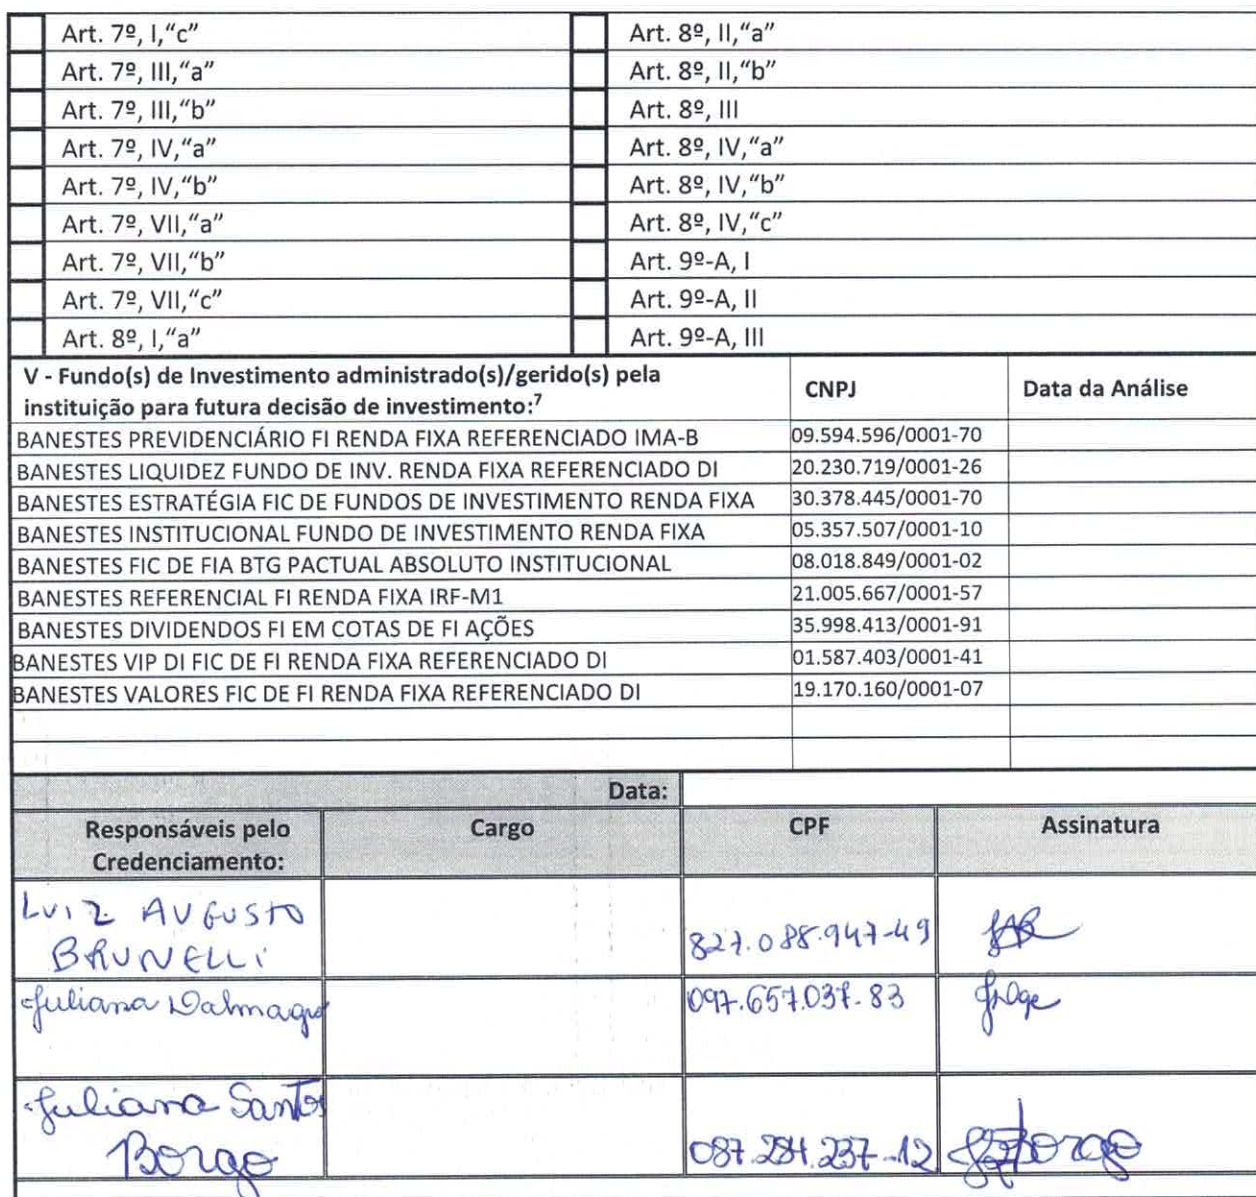 Art. 7º, I,“c” Art. 8º, II,“a”
Art. 7º, III,“a” Art. 8º, II,“b”
Art. 7º, III,“b” Art. 8º, III
Art. 7º, IV,“a” Art. 8º, IV,“a”
Art. 7º, IV,“b” Art. 8º, IV,“b”
Art. 7º, VII,“a” Art. 8º, IV,“c”
Art. 7º, VII,“b” Art. 9º-A, I
Art. 7º, VII,“c” Art. 9º-A, II
Art. 8º, I,“a” Art. 9º-A, III
V - Fundo(s) de Investimento administrado(s)/gerido(s) pela
instituição para futura decisão de investimento:⁷ CNPJ Data da Análise
BANESTES PREVIDENCIÁRIO FI RENDA FIXA REFERENCIADO IMA-B 09.594.596/0001-70
BANESTES LIQUIDEZ FUNDO DE INV. RENDA FIXA REFERENCIADO DI 20.230.719/0001-26
BANESTES ESTRATÉGIA FIC DE FUNDOS DE INVESTIMENTO RENDA FIXA 30.378.445/0001-70
BANESTES INSTITUCIONAL FUNDO DE INVESTIMENTO RENDA FIXA 05.357.507/0001-10
BANESTES FIC DE FIA BTG PACTUAL ABSOLUTO INSTITUCIONAL 08.018.849/0001-02
BANESTES REFERENCIAL FI RENDA FIXA IRF-M1 21.005.667/0001-57
BANESTES DIVIDENDOS FI EM COTAS DE FI AÇÕES 35.998.413/0001-91
BANESTES VIP DI FIC DE FI RENDA FIXA REFERENCIADO DI 01.587.403/0001-41
BANESTES VALORES FIC DE FI RENDA FIXA REFERENCIADO DI 19.170.160/0001-07
Data:
Responsáveis pelo Cargo CPF Assinatura
Credenciamento:
LUIZ AUGUSTO
BRUNELLI 827.088.947-49
Juliana Dalmagro 097.657.037-83
Juliana Santos
Borgo 087.284.237-12 Borgo